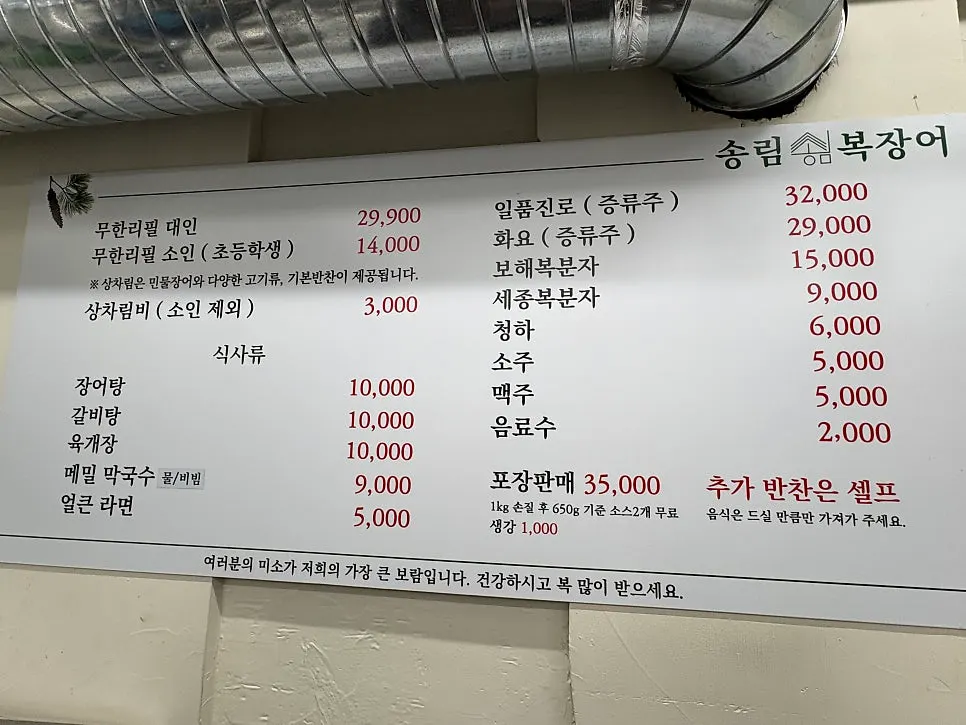 송림 송림 복장어
무한리필 대인 29,900
무한리필 소인 ( 초등학생 ) 14,000
※ 상차림은 민물장어와 다양한 고기류, 기본반찬이 제공됩니다.
상차림비 ( 소인 제외 ) 3,000
식사류
장어탕 10,000
갈비탕 10,000
육개장 10,000
메밀 막국수 물/비빔 9,000
얼큰 라면 5,000
일품진로 ( 증류주 ) 32,000
화요 ( 증류주 ) 29,000
보해복분자 15,000
세종복분자 9,000
청하 6,000
소주 5,000
맥주 5,000
음료수 2,000
포장판매 35,000
1kg 손질 후 650g 기준 소스2개 무료
생강 1,000
추가 반찬은 셀프
음식은 드실 만큼만 가져가 주세요.
여러분의 미소가 저희의 가장 큰 보람입니다. 건강하시고 복 많이 받으세요.